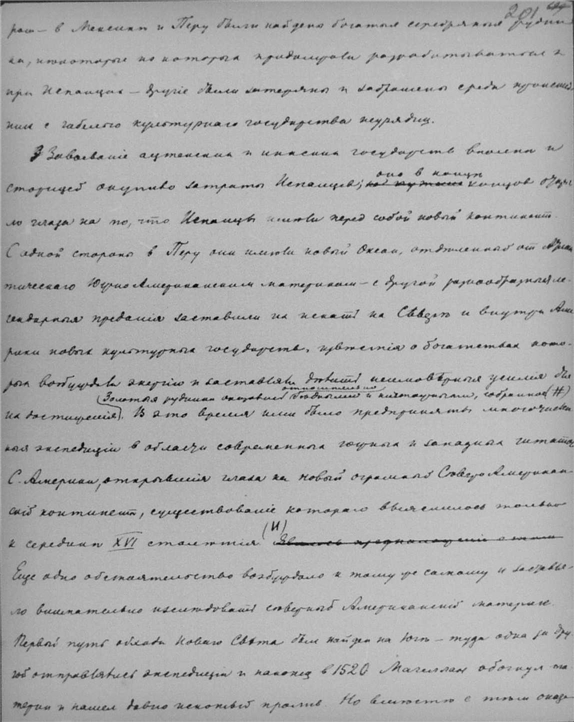 201
раш - в Мексике и Перу были найдены богатые серебряные рудни
ки, некоторые из которых продолжали разрабатываться и
при Испанцах - другие были затеряны и заброшены среди происшед
ших с гибелью культурного государства неурядиц.
Завоевание ацтекских и инкских государств вполне и
сторицей окупило затраты Испанцев; оно в конце концов откры
ло глаза на то, что Испанцы имели перед собой новый континент.
С одной стороны в Перу они имели новый Океан, отделенный от Атлан
тического Южно Американским материком - с другой разнообразные ле
гендарные предания заставили их искать на Севере и внутри Аме
рики новых культурных государств, известия о богатствах кото
рых возбуждали энергию и заставляли делать неимоверные усилия для
Золотые рудники оказались относительно бедными и
их достижения. В это время ими были предприняты многочислен
ныя экспедиции в области современных южных и западных штатов
С. Америки, открывшия глаза на новый огромный Северо Американ
ский континент, существование котораго выяснилось только
к середине XVI столетия (И)
Еще одно обстоятельство возбуждало к тому же самому и заставля
ло внимательно изследовать северный Американский материк.
Первый путь обхода Новаго Света был найден на юге - туда одна за дру
гой отправлялись экспедиции и наконец в 1520 Магеллан обогнул ма
терик и нашел давно искомый пролив. Но вместе с тем оказа